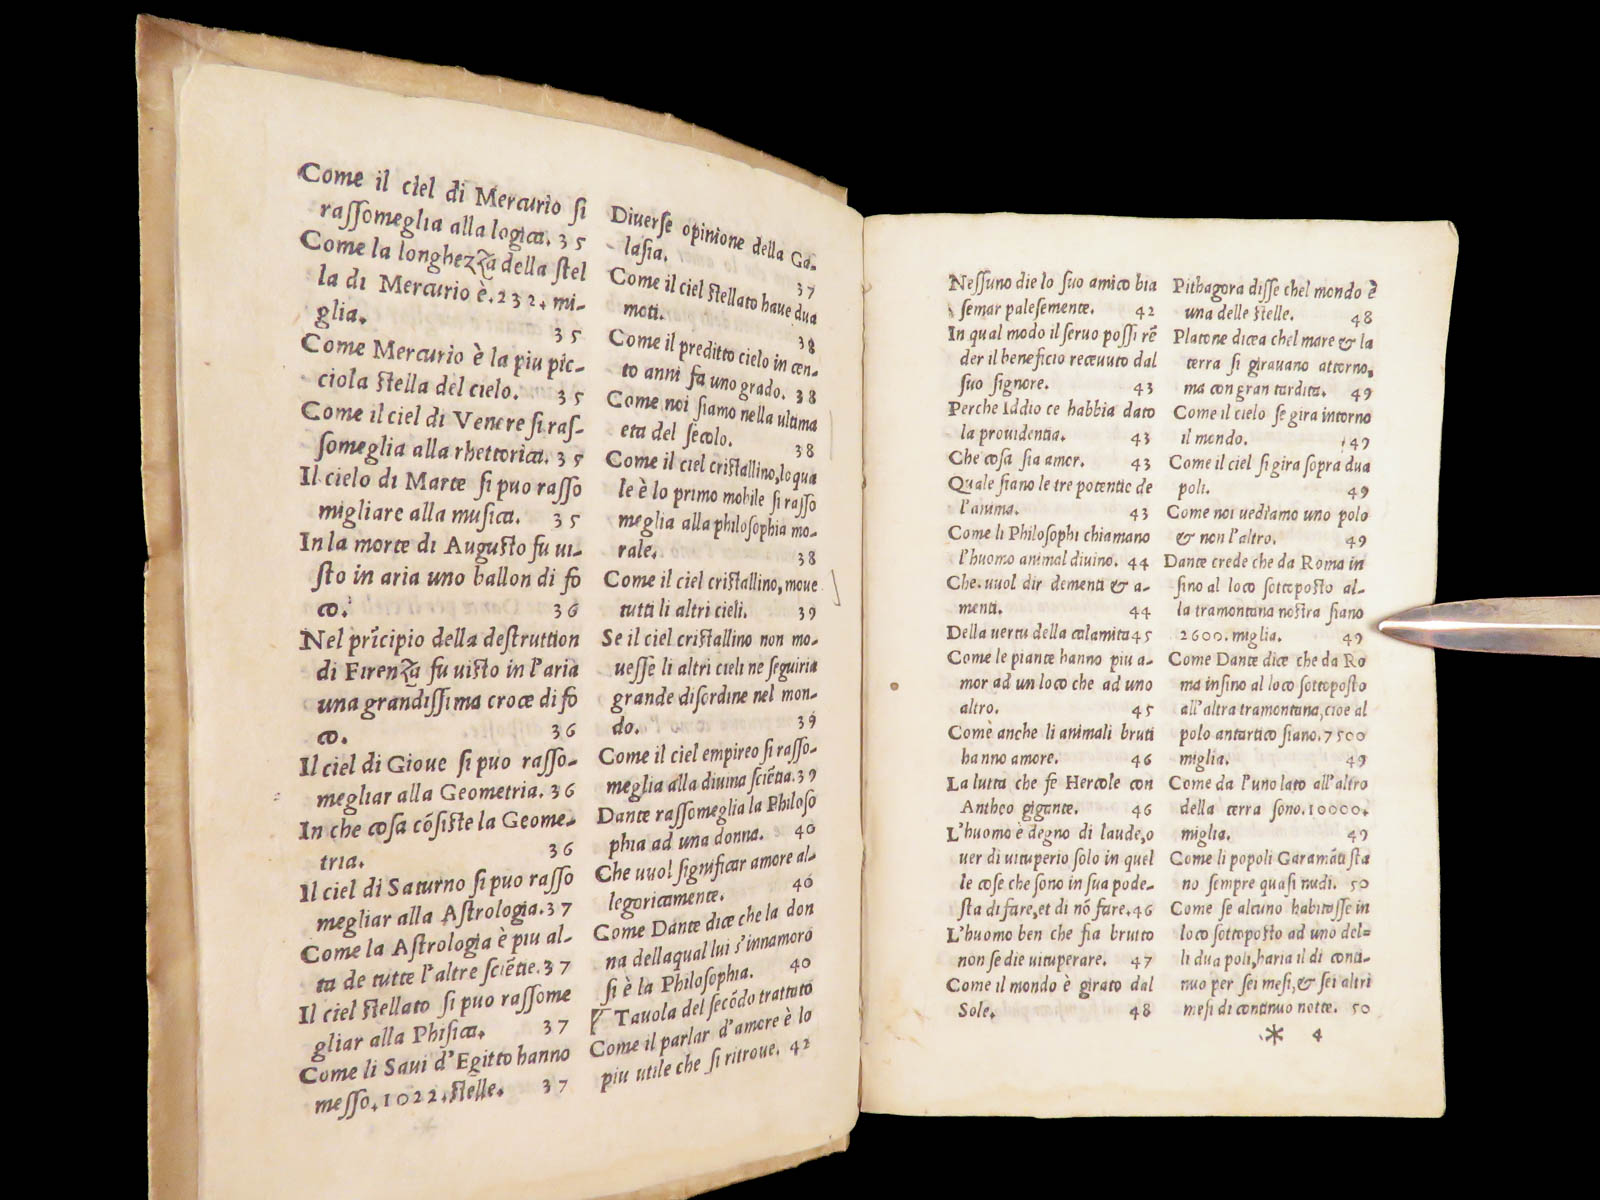 Come il ciel di Mercurio si
raſſomeglia alla logica. 35
Come la longhezza della ſtel
la di Mercurio è. 232. mi-
glia. 35
Come Mercurio è la piu pic-
ciola ſtella del cielo. 35
Come il ciel di Venere ſi raſ-
ſomeglia alla rhettorica. 35
Il cielo di Marte ſi puo raſſo
migliare alla muſica. 35
In la morte di Auguſto fu ui-
ſto in aria uno ballon di fo
co. 36
Nel prīcipio della deſtruttion
di Firenza fu uiſto in l'aria
una grandiſſima croce di fo
co. 36
Il ciel di Gioue ſi puo raſſo-
megliar alla Geometria. 36
In che coſa cōſiſte la Geome-
tria. 36
Il ciel di Saturno ſi puo raſſo
megliar alla Aſtrologia. 37
Come la Aſtrologia è piu al-
ta de tutte l'altre ſciētie. 37
Il ciel ſtellato ſi puo raſſome
gliar alla Phiſica. 37
Come li Saui d'Egitto hanno
meſſo. 1022. ſtelle. 37
Diuerſe opinione della Ga-
laſia. 37
Come il ciel ſtellato haue dua
moti. 38
Come il preditto cielo in cen-
to anni fa uno grado. 38
Come noi ſiamo nella ultima
eta del ſecolo. 38
Come il ciel criſtallino, lo qua
le è lo primo mobile ſi raſſo
meglia alla philoſophia mo-
rale. 38
Come il ciel criſtallino, moue
tutti li altri cieli. 39
Se il ciel criſtallino non mo-
ueſſe li altri cieli ne ſeguiria
grande diſordine nel mon-
do. 39
Come il ciel empireo ſi raſſo-
meglia alla diuina ſciētia. 39
Dante raſſomeglia la Philoſo
phia ad una donna. 40
Che uuol ſignificar amore al-
legoricamente. 40
Come Dante dice che la don
na dellaqual lui s'innamoro
ſi è la Philoſophia. 40
Tauola del ſecōdo trattato
Come il parlar d'amore è lo
piu utile che ſi ritroue. 42
Neſſuno die lo ſuo amico bia
ſemar paleſemente. 42
In qual modo il ſeruo poſſi rē
der il beneficio receuuto dal
ſuo ſignore. 43
Perche Iddio ce habbia dato
la prouidentia. 43
Che coſa ſia amor. 43
Quale ſiano le tre potentie de
l'anima. 43
Come li Philoſophi chiamano
l'huomo animal diuino. 44
Che uuol dir dementi & a-
menti. 44
Della uertu della calamita 45
Come le piante hanno piu a-
mor ad un loco che ad uno
altro. 45
Comè anche li animali bruti
hanno amore. 46
La lutta che fe Hercole con
Antheo gigante. 46
L'huomo è degno di laude, o
uer di uituperio ſolo in quel
le coſe che ſono in ſua pode-
ſta di fare, et di nō fare. 46
L'huomo ben che ſia brutto
non ſe die uituperare. 47
Come il mondo è girato dal
Sole. 48
Pithagora diſſe chel mondo è
una delle ſtelle. 48
Platone dicea chel mare & la
terra ſi girauano attorno,
ma con gran tardita. 49
Come il cielo ſe gira intorno
il mondo. 49
Come il ciel ſi gira ſopra dua
poli. 49
Come noi uediamo uno polo
& non l'altro. 49
Dante crede che da Roma in
fino al loco ſottopoſto al-
la tramontana noſtra ſiano
2600. miglia. 49
Come Dante dice che da Ro
ma inſino al loco ſottopoſto
all'altra tramontana, cioe al
polo antartico ſiano. 7500
miglia. 49
Come da l'uno lato all'altro
della terra ſono. 10000.
miglia. 49
Come li popoli Garamāti ſta
no ſempre quaſi nudi. 50
Come ſe alcuno habitaſſe in
loco ſottopoſto ad uno del-
li dua poli, haria il di conti-
nuo per ſei meſi, & ſei altri
meſi di continuo notte. 50
* 4